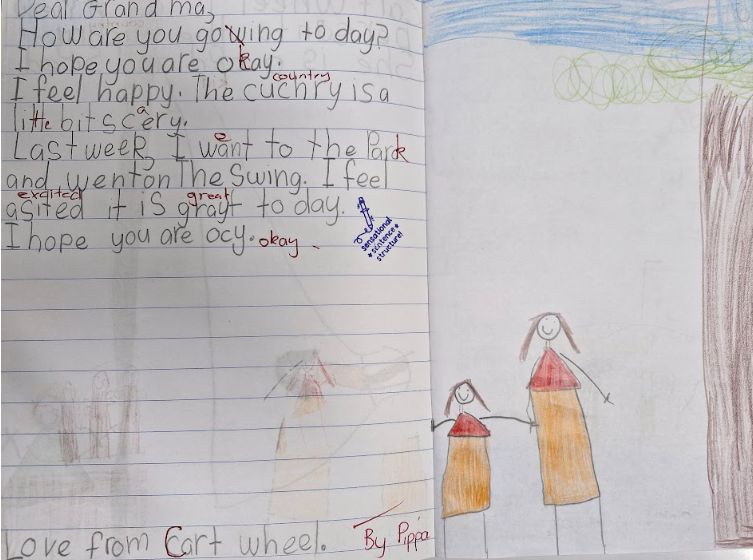 Dear Grandma,
How are you gowing to day?
I hope you are okay.
country
I feel happy. The cuchry is a
little bit scary.
Last week, I went to the Park
and went on The Swing. I feel
excited great
asited it is grayt to day.
I hope you are ocy. okay.
sensational
sentence
structure!
Love from Cart wheel.
By Pippa